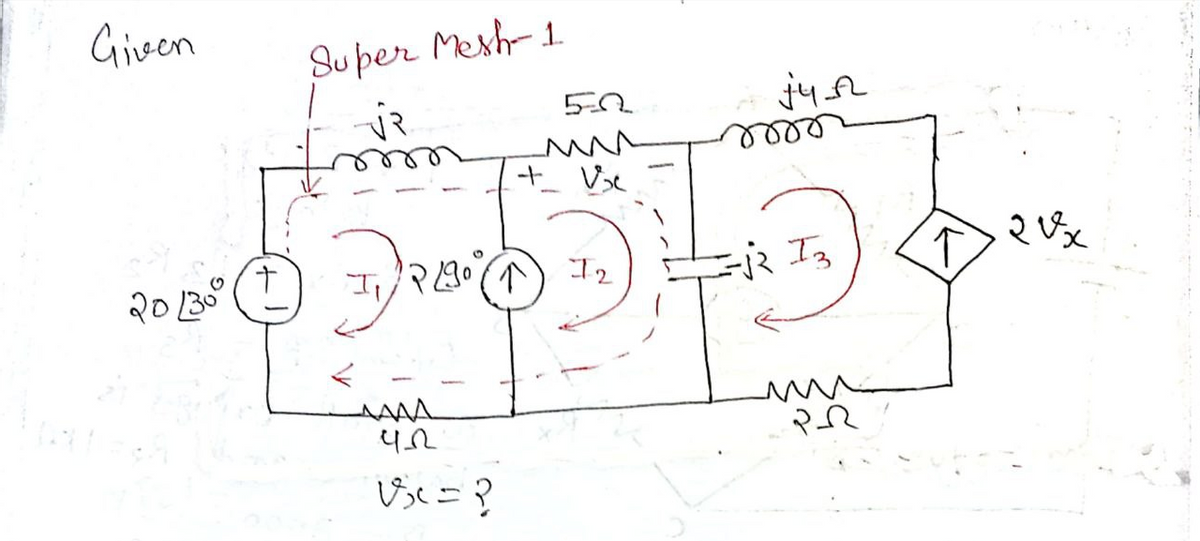 Given
Super Mesh-1
j2
5Ω
j4Ω
+ Vx -
20∠30°
+
-
I1
2∠90°
I2
-j2
I3
2Vx
4Ω
2Ω
Vx = ?